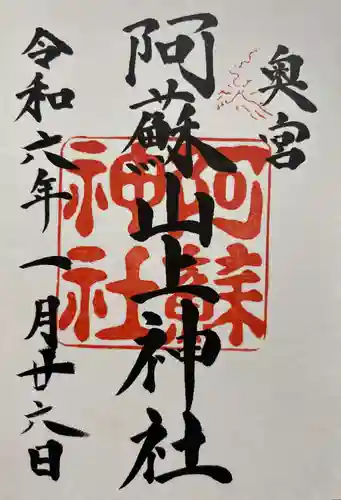 奥宮
阿蘇山上神社
令和六年一月廿六日
阿蘇
神社